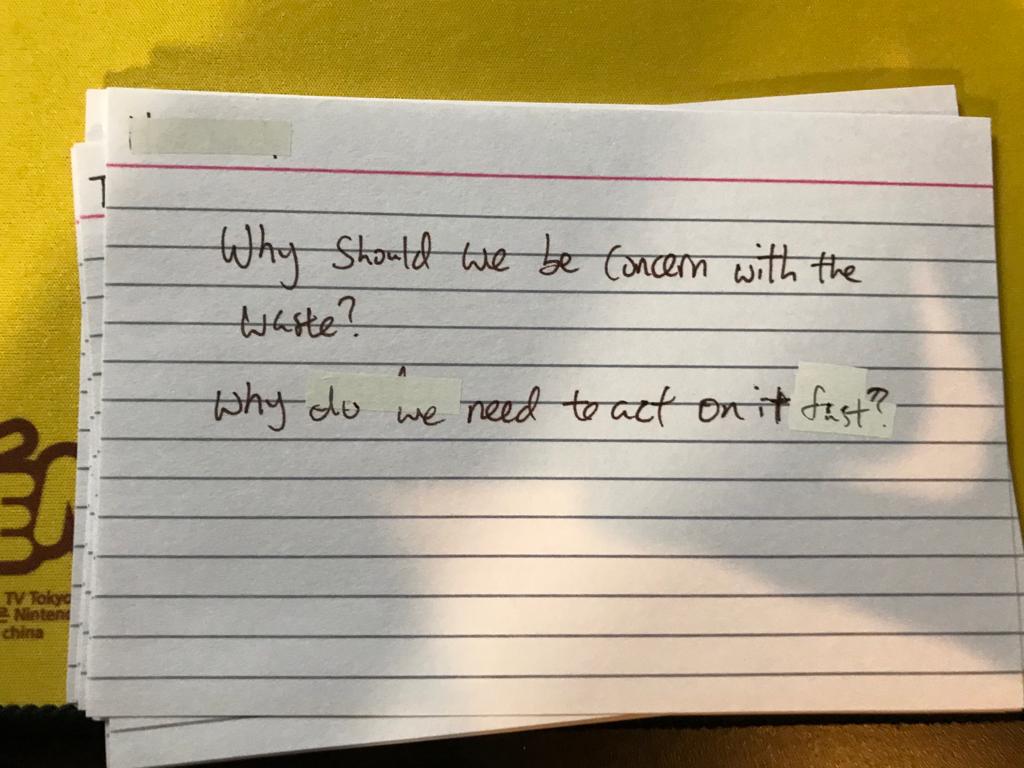 Why should we be concern with the
waste?
Why do we need to act on it fast?
TV Tokyo
Nintend
china